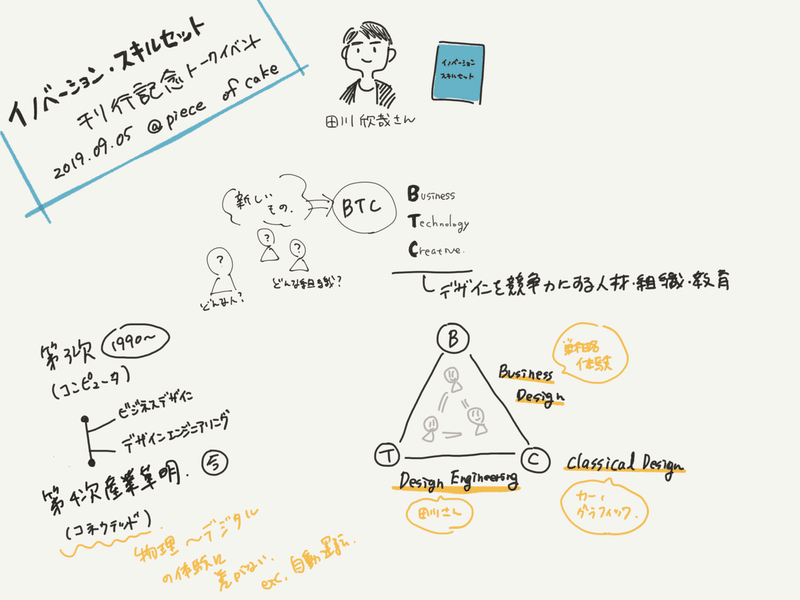 イノベーション・スキルセット
刊行記念トークイベント
2019.09.05 @piece of cake
イノベーション
スキルセット
田川欣哉さん
新しい
もの。
BTC
Business
Technology
Creative.
?
?
?
どんな人?
どんな組織?
デザインを競争力にする人材・組織・教育
第3次 1990〜
(コンピュータ)
ビジネスデザイン
デザインエンジニアリング
第4次産業革明. 今
(コネクテッド)
物理〜デジタル
の体験に
差がない.
exc, 自動運転.
B
戦略
体験
Business
Design
T
C
Classical Design
Design Engineering
田川さん
カー、
グラフィック.